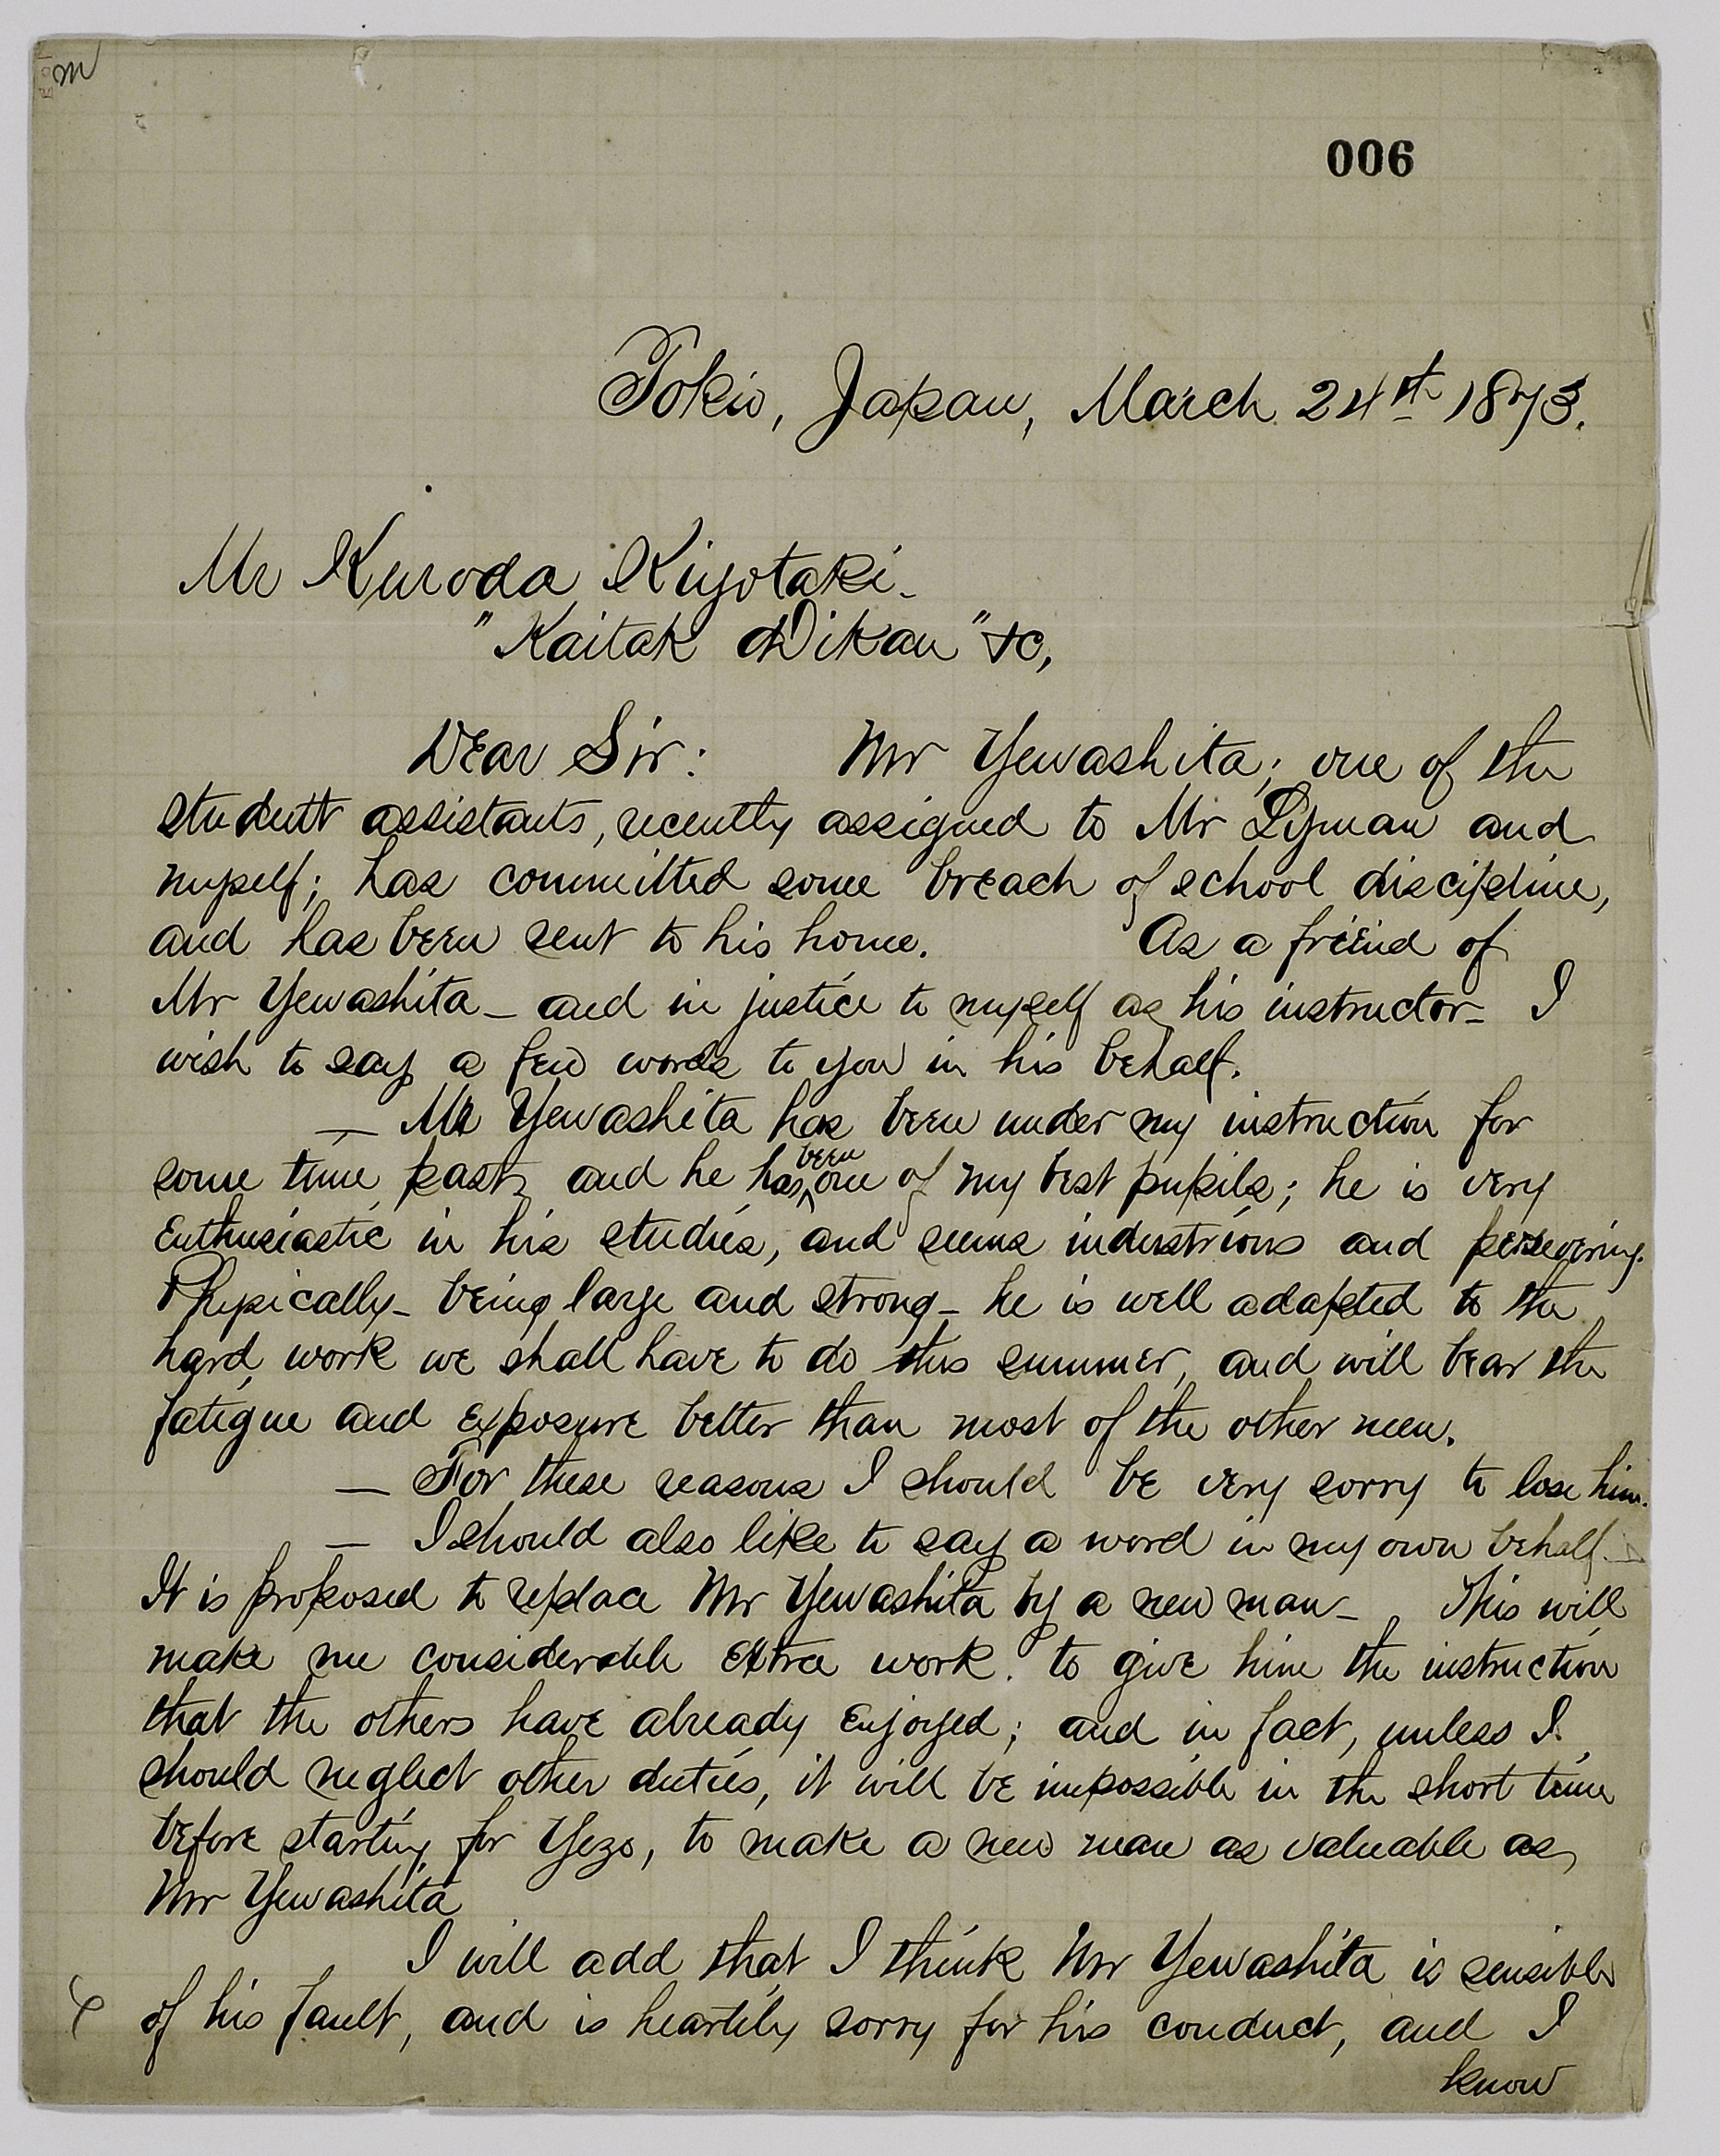 m
006
Tokio, Japan, March 24th 1873.
Mr Kuroda Kiyotaki.
"Kaitak Dikan" &c,
Dear Sir: Mr Yewashita; one of the
student assistants, recently assigned to Mr Lyman and
myself; has committed some breach of school discipline,
and has been sent to his home. As a friend of
Mr Yewashita - and in justice to myself as his instructor - I
wish to say a few words to you in his behalf.
— Mr Yewashita has been under my instruction for
been
some time past, and he has, one of my best pupils; he is very
Enthusiastic in his studies, and seems industrious and persevering.
Physically - being large and strong - he is well adapted to the
hard work we shall have to do this summer, and will bear the
fatigue and exposure better than most of the other men.
— For these reasons I should be very sorry to lose him.
— I should also like to say a word in my own behalf.
It is proposed to replace Mr Yewashita by a new man - This will
make me considerable extra work. to give him the instruction
that the others have already enjoyed; and in fact, unless I
should neglect other duties, it will be impossible in the short time
before starting for Yezo, to make a new man as valuable as
Mr Yewashita
I will add that I think Mr Yewashita is sensible
of his fault, and is heartily sorry for his conduct, and I
know